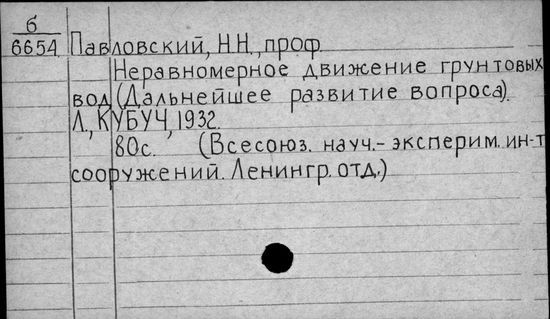 б
6654 Павловский, Н.Н., проф.
Неравномерное движение грунтовых
вод (Дальнейшее развитие вопроса).
Л., КУБУЧ, 1932.
80с. (Всесоюз. науч.-эксперим. ин-т
сооружений. Ленингр. отд.)